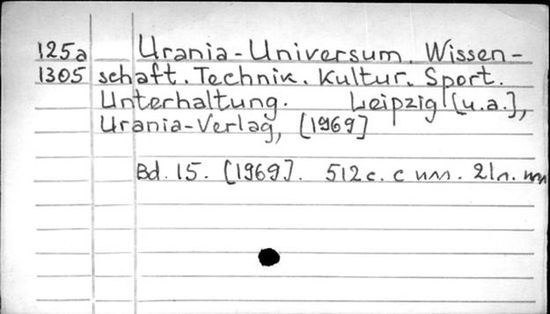 125a Urania-Universum. Wissen-
1305 schaft. Technik. Kultur. Sport.
Unterhaltung. Leipzig [u.a.],
Urania-Verlag, [1969]
Bd. 15. [1969]. 512 с. с илл. 21 л. илл